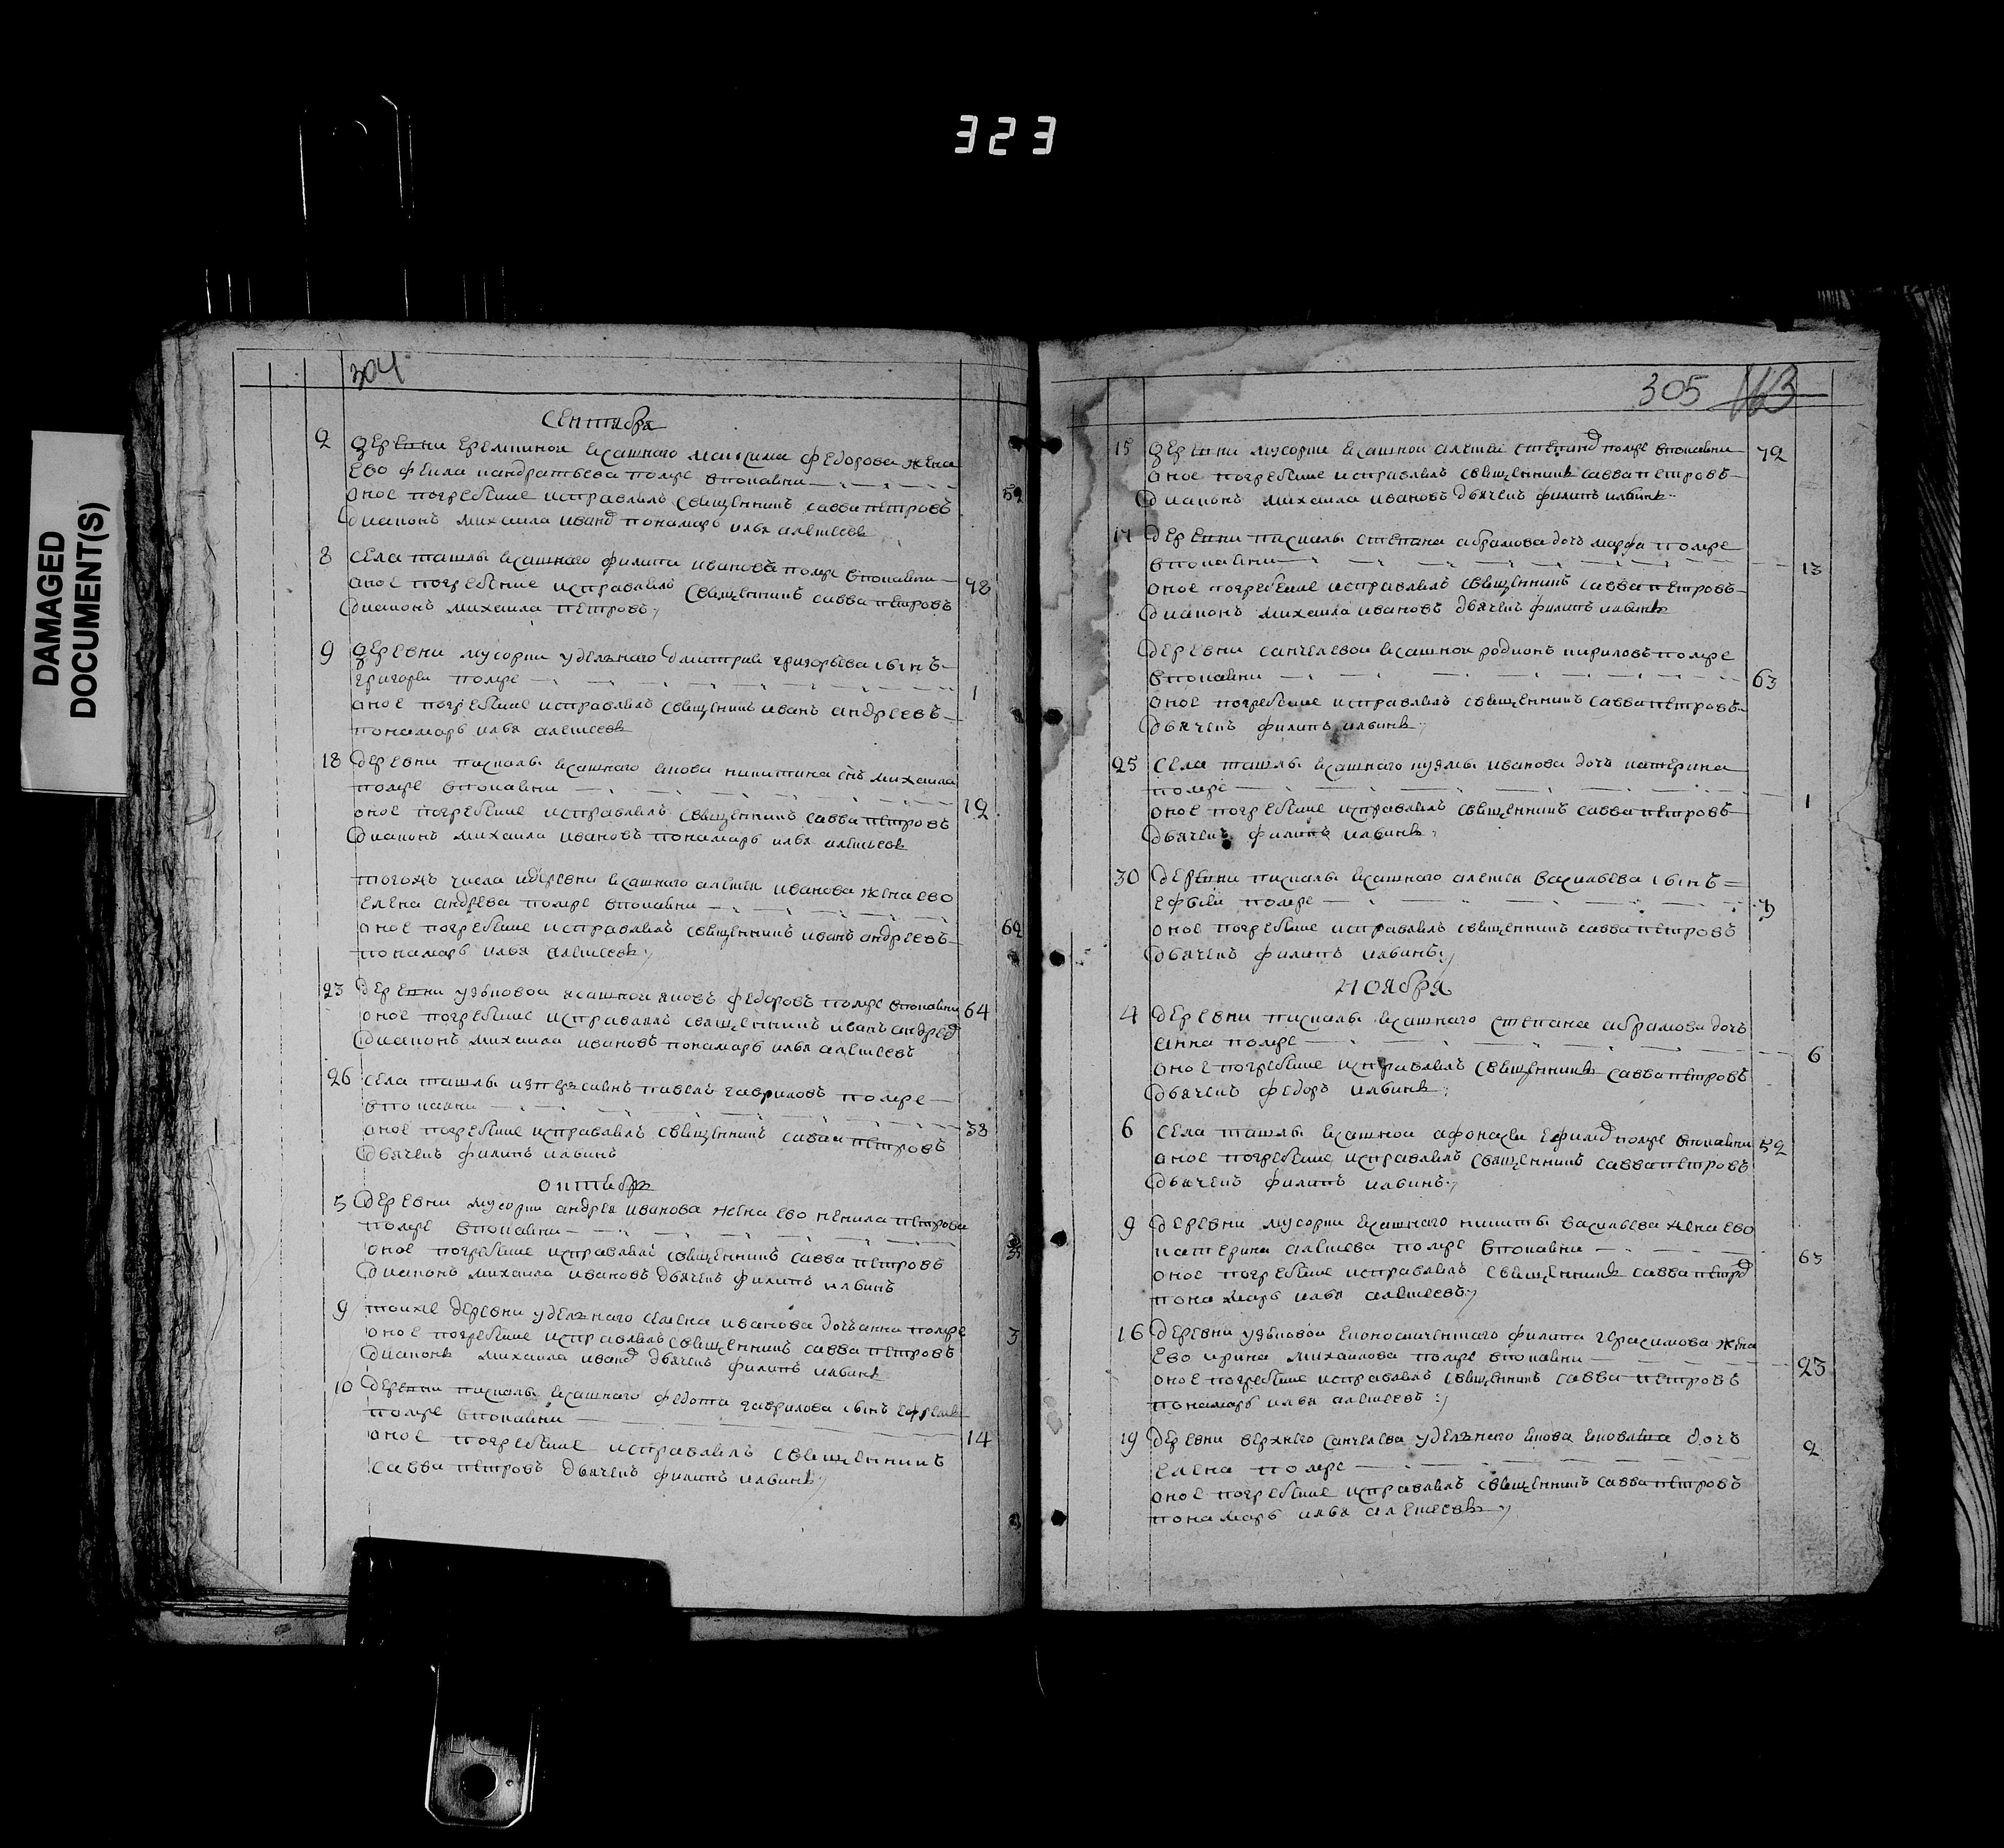 323
DAMAGED
DOCUMENT(S)
304
сентября
2 деревни еремкиной ясашнаго максима федорова жена
ево фекла кандратьева помре впокаяни 52
оное погребение исправлялъ священникъ савва петровъ
диаконъ михаила иванов понамарь илья алексеевъ
8 села ташлы ясашнаго филипа ивановъ помре впокаяни 48
оное погребение исправлялъ священникъ савва петровъ
диаконъ михаила петровъ
9 деревни мусорки удельнаго дмитрия григорьева сынъ
григорей помре 1
оное погребение исправлялъ священникъ иванъ андреевъ
понамарь илья алексеевъ
18 деревни пискалы ясашнаго якова никитина снъ михаила
помре впокаяни 12
оное погребение исправлялъ священникъ савва петровъ
диаконъ михаила ивановъ понамарь илья алексеевъ
тогожъ числа деревни ясашнаго алексея иванова жена ево
елена андреева помре впокаяни 62
оное погребение исправлялъ священникъ иванъ андреевъ
понамарь илья алексеевъ
23 деревни узюковой ясашной яковъ федоровъ помре впокаяни 64
оное погребение исправлялъ священникъ иванъ андреев
диаконъ михаила ивановъ понамарь илья алексеевъ
26 села ташлы павелъ гавриловъ помре
впокаяни 38
оное погребение исправлялъ священникъ савва петровъ
дьячекъ филипъ ильинъ
октябр
5 деревни мусорки андрея иванова жена ево ненила петрова
помре впокаяни
оное погребение исправлялъ священникъ савва петровъ
диаконъ михаила ивановъ дьячекъ филипъ ильинъ
9 тоихже деревни удельнаго семена иванова дочь анна помре 3
оное погребение исправлялъ священникъ савва петровъ
диаконъ михаила иванов дьячекъ филипъ ильинъ
10 деревни пискалы ясашнаго федота гаврилова сынъ
помре впокаяни 14
оное погребение исправлялъ священникъ
савва петровъ дьячекъ филипъ ильинъ
305 163
15 деревни мусорки ясашной алексей степанов помре впокаяни 72
оное погребение исправлялъ священникъ савва петровъ
диаконъ михаила ивановъ дьячекъ филипъ ильинъ
17 деревни пискалы степана абрамова дочь марфа помре
впокаяни 13
оное погребение исправлялъ священникъ савва петровъ
диаконъ михаила ивановъ дьячекъ филипъ ильинъ
деревни санчелевой ясашной родионъ кириловъ помре
впокаяни 63
оное погребение исправлялъ священникъ савва петровъ
дьячекъ филипъ ильинъ
25 села ташлы ясашнаго кузмы иванова дочь катерина
помре 1
оное погребение исправлялъ священникъ савва петровъ
дьячекъ филипъ ильинъ
30 деревни пискалы ясашнаго алексея васильева сынъ
помре
оное погребение исправлялъ священникъ савва петровъ
дьячекъ филипъ ильинъ
ноября
4 деревни пискалы ясашнаго степана абрамова дочь
анна помре 6
оное погребение исправлялъ священникъ савва петровъ
дьячекъ федоръ ильинъ
6 села ташлы ясашной афонасей ефимов помре впокаяни 52
оное погребение исправлялъ священникъ савва петровъ
дьячекъ филипъ ильинъ
9 деревни мусорки ясашнаго никиты васильева жена ево
катерина алексеева помре впокаяни 63
оное погребение исправлялъ священникъ савва петров
понамарь илья алексеевъ
16 деревни узюковой филипа герасимова жена
ево ирина михаилова помре впокаяни 23
оное погребение исправлялъ священникъ савва петровъ
понамарь илья алексеевъ
19 деревни верхнего санчелева удельнаго якова яковлева дочь 2
елена помре
оное погребение исправлялъ священникъ савва петровъ
понамарь илья алексеевъ